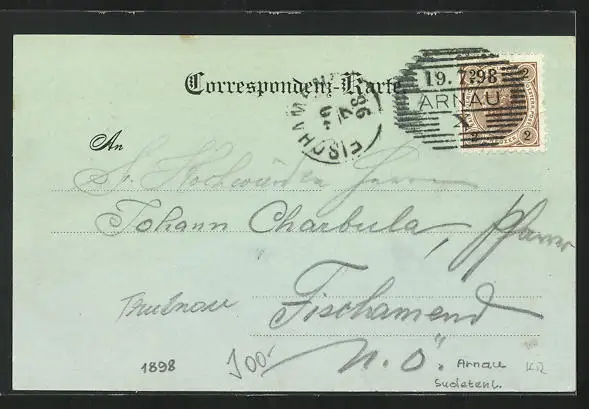 Correspondenz-Karte
19.7.98
ARNAU
2
2
FISCHAMEND
An
Sr. Hochwürden Herrn
Johann Charbula, Pfarrer
Trutnau
Fischamend
N.Ö.
1898
100-
Arnau
Sudetenl.